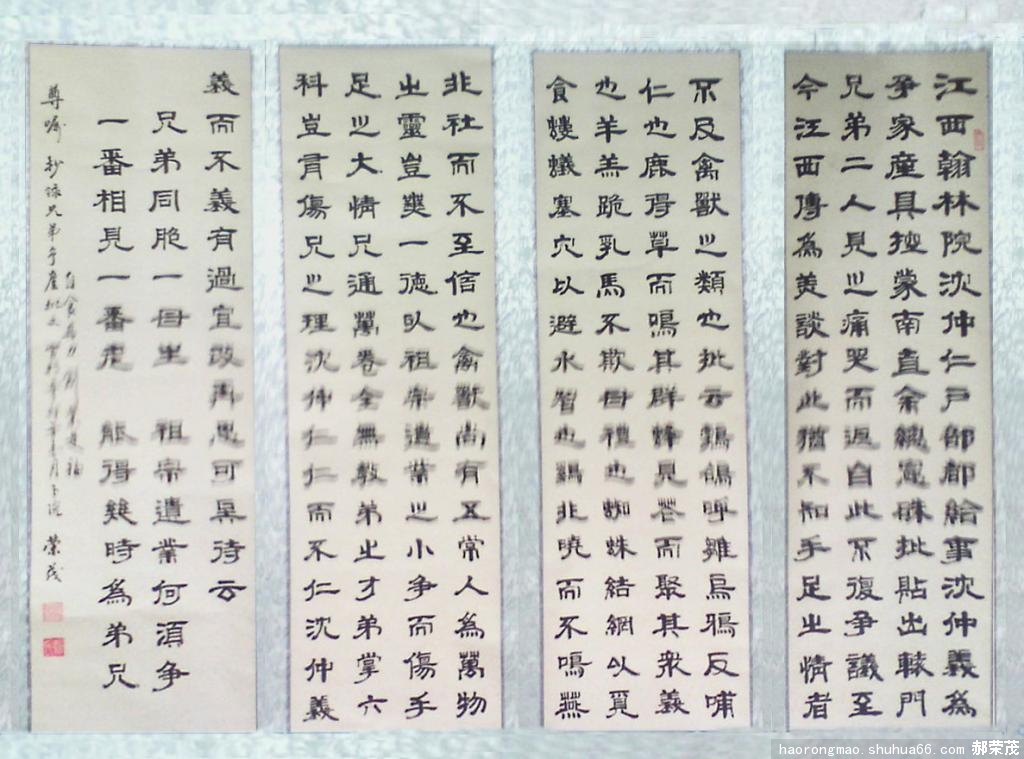 江西翰林院沈仲仁戶部都給事沈仲義為
爭家產具控蒙南直余總憲硃批貼出轅門
兄弟二人見之痛哭而返自此不復爭議至
今江西傳為美談對此猶不知手足之情者
不及禽獸之類也批云鵓鴿呼雛烏鴉反哺
仁也鹿得草而鳴其群蜂見花而聚其衆義
也羊羔跪乳馬不欺母禮也蜘蛛結網以覓
食螻蟻塞穴以避水智也鷄非曉而不鳴燕
非社而不至信也禽獸尚有五常人為萬物
之靈豈無一德以祖宗遺業之小爭而傷手
足之大情兄通萬卷全無教弟之才弟掌六
科豈肯傷兄之理沈仲仁仁而不仁沈仲義
義而不義有過宜改再思可矣待云
兄弟同胞一母生 祖宗遺業何須爭
一番相見一番老 能得幾時為弟兄
尊囑 抄錄兄弟爭產批文 榮茂
haorongmao.shuhua66.com 郝荣茂